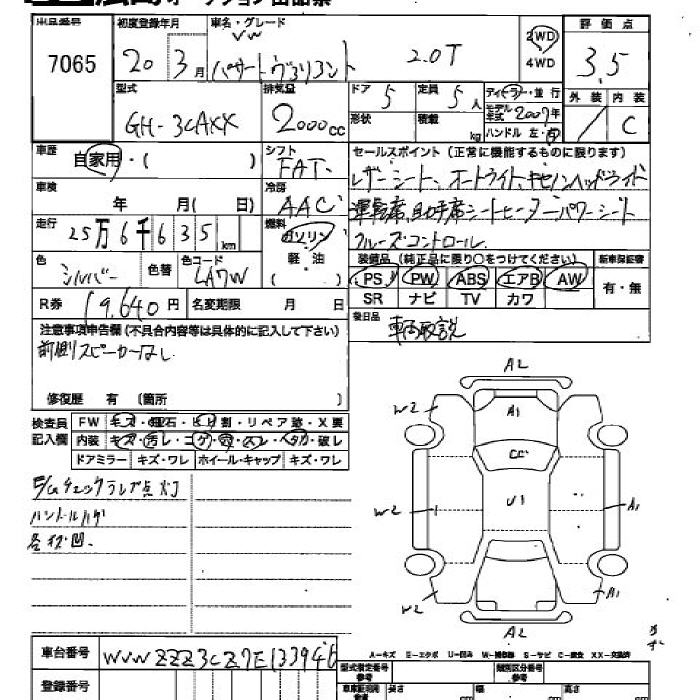 オークション出品票
出品番号 7065
初度登録年月 20年3月
車名・グレード VW パサートヴァリアント 2.0T
2WD
4WD
評価点 3.5
型式 GH-3CAXX
排気量 2000cc
ドア 5
定員 5人
形状
積載 kg
ディーラー・並行
モデル年式 2007年
ハンドル 左・右
外装 /
内装 C
車歴 自家用・( )
シフト FAT
セールスポイント (正常に機能するものに限ります)
レザーシート、オートライト、キセノンヘッドライト
運転席、助手席シートヒーター、パワーシート
クルーズコントロール
車検 年 月( 日)
冷房 AAC
走行 25万6千635km
燃料 ガソリン
軽油
色 シルバー
色替
色コード LA7W
装備品 (純正品に限り○をつけてください)
新車保証書
PS PW ABS エアB AW
有・無
SR ナビ TV カワ
R券 19,640円
名変期限 月 日
後日品 車両取説
注意事項申告欄 (不具合内容等は具体的に記入して下さい)
前側スピーカーなし
修復歴 有 (箇所 )
検査員記入欄
FW キズ・飛石・ヒビ割・リペア跡・X要
内装 キズ・汚レ・コゲ・穴・スレ・ベタカ・破レ
ドアミラー キズ・ワレ ホイール・キャップ キズ・ワレ
E/Gチェックランプ点灯
ハンドルハゲ
各キズ凹
A2
W2 A1
CC
W2 U1 A1
W2 A1
A2
A-キズ E-エクボ U-凹み W-補修跡 S-サビ C-腐食 XX-交換済
車台番号 WVWZZZ3CZ7E133946
登録番号
型式指定番号 参考
類別区分番号 参考
車庫証明用 参考
長さ cm 幅 cm 高さ cm